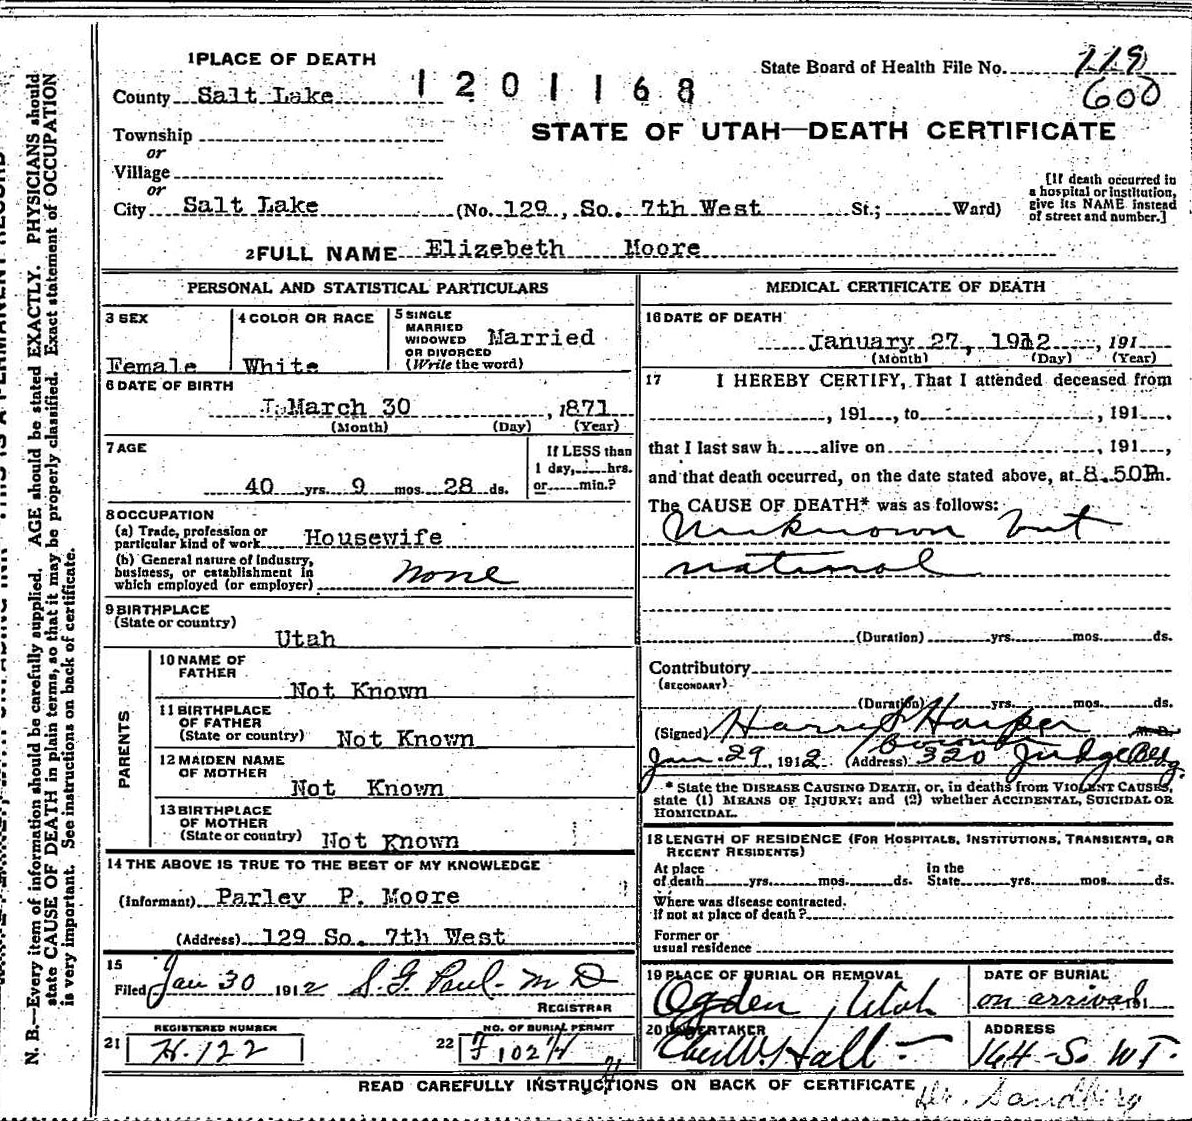 1 PLACE OF DEATH
State Board of Health File No. 118
600
1 2 0 1 1 6 8
County Salt Lake
STATE OF UTAH—DEATH CERTIFICATE
Township
or
Village
or
City Salt Lake (No. 129, So. 7th West St.; Ward)
[If death occurred in
a hospital or institution,
give its NAME instead
of street and number.]
2 FULL NAME Elizebeth Moore
PERSONAL AND STATISTICAL PARTICULARS
3 SEX
Female
4 COLOR OR RACE
White
5 SINGLE
MARRIED
WIDOWED
OR DIVORCED
(Write the word)
Married
6 DATE OF BIRTH
March 30, 1871
(Month) (Day) (Year)
7 AGE
40 yrs. 9 mos. 28 ds.
If LESS than
1 day, hrs.
or min.?
8 OCCUPATION
(a) Trade, profession or
particular kind of work Housewife
(b) General nature of industry,
business, or establishment in
which employed (or employer) none
9 BIRTHPLACE
(State or country)
Utah
PARENTS
10 NAME OF
FATHER
Not Known
11 BIRTHPLACE
OF FATHER
(State or country) Not Known
12 MAIDEN NAME
OF MOTHER
Not Known
13 BIRTHPLACE
OF MOTHER
(State or country) Not Known
14 THE ABOVE IS TRUE TO THE BEST OF MY KNOWLEDGE
(Informant) Parley P. Moore
(Address) 129 So. 7th West
15
Filed Jan 30 1912 S. G. Paul M D
REGISTRAR
REGISTERED NUMBER
21 H.122
NO. OF BURIAL PERMIT
22 F 1024
MEDICAL CERTIFICATE OF DEATH
16 DATE OF DEATH
January 27, 1912, 191
(Month) (Day) (Year)
17 I HEREBY CERTIFY, That I attended deceased from
, 191 , to , 191 ,
that I last saw h alive on , 191 ,
and that death occurred, on the date stated above, at 8.50P.m.
The CAUSE OF DEATH* was as follows:
Unknown but
natural
(Duration) yrs. mos. ds.
Contributory
(SECONDARY)
(Duration) yrs. mos. ds.
(Signed) Harry S Harper M.D.
Coroner
Jan. 29, 1912 (Address) 320 Judge Bldg.
* State the DISEASE CAUSING DEATH, or, in deaths from VIOLENT CAUSES,
state (1) MEANS OF INJURY; and (2) whether ACCIDENTAL, SUICIDAL OR
HOMICIDAL.
18 LENGTH OF RESIDENCE (FOR HOSPITALS, INSTITUTIONS, TRANSIENTS, OR
RECENT RESIDENTS)
At place
of death yrs. mos. ds.
In the
State yrs. mos. ds.
Where was disease contracted.
If not at place of death?
Former or
usual residence
19 PLACE OF BURIAL OR REMOVAL
Ogden, Utah
DATE OF BURIAL
on arrival
20 UNDERTAKER
Eber W. Hall
ADDRESS
164 - So. W. T.
READ CAREFULLY INSTRUCTIONS ON BACK OF CERTIFICATE
Dr. Sandberg
N. B.—Every item of information should be carefully supplied. AGE should be stated EXACTLY. PHYSICIANS should
state CAUSE OF DEATH in plain terms, so that it may be properly classified. Exact statement of OCCUPATION
is very important. See instructions on back of certificate.